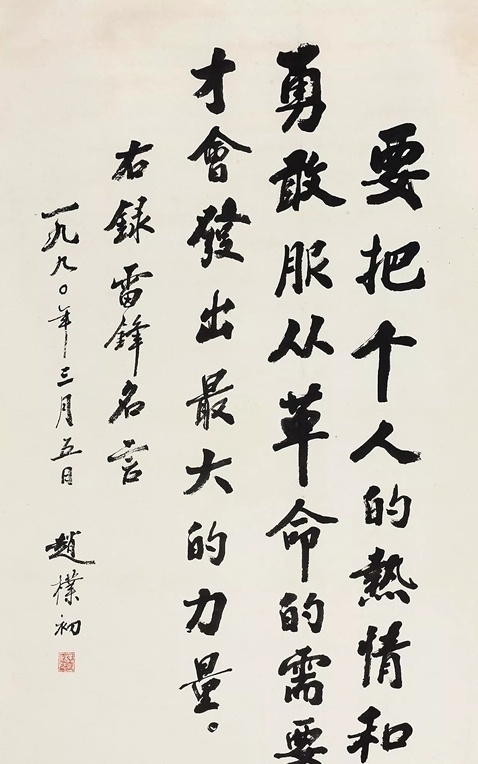 要把个人的熱情和
勇敢服从革命的需要
才會發出最大的力量。
右録雷鋒名言
一九九〇年三月五日
趙樸初